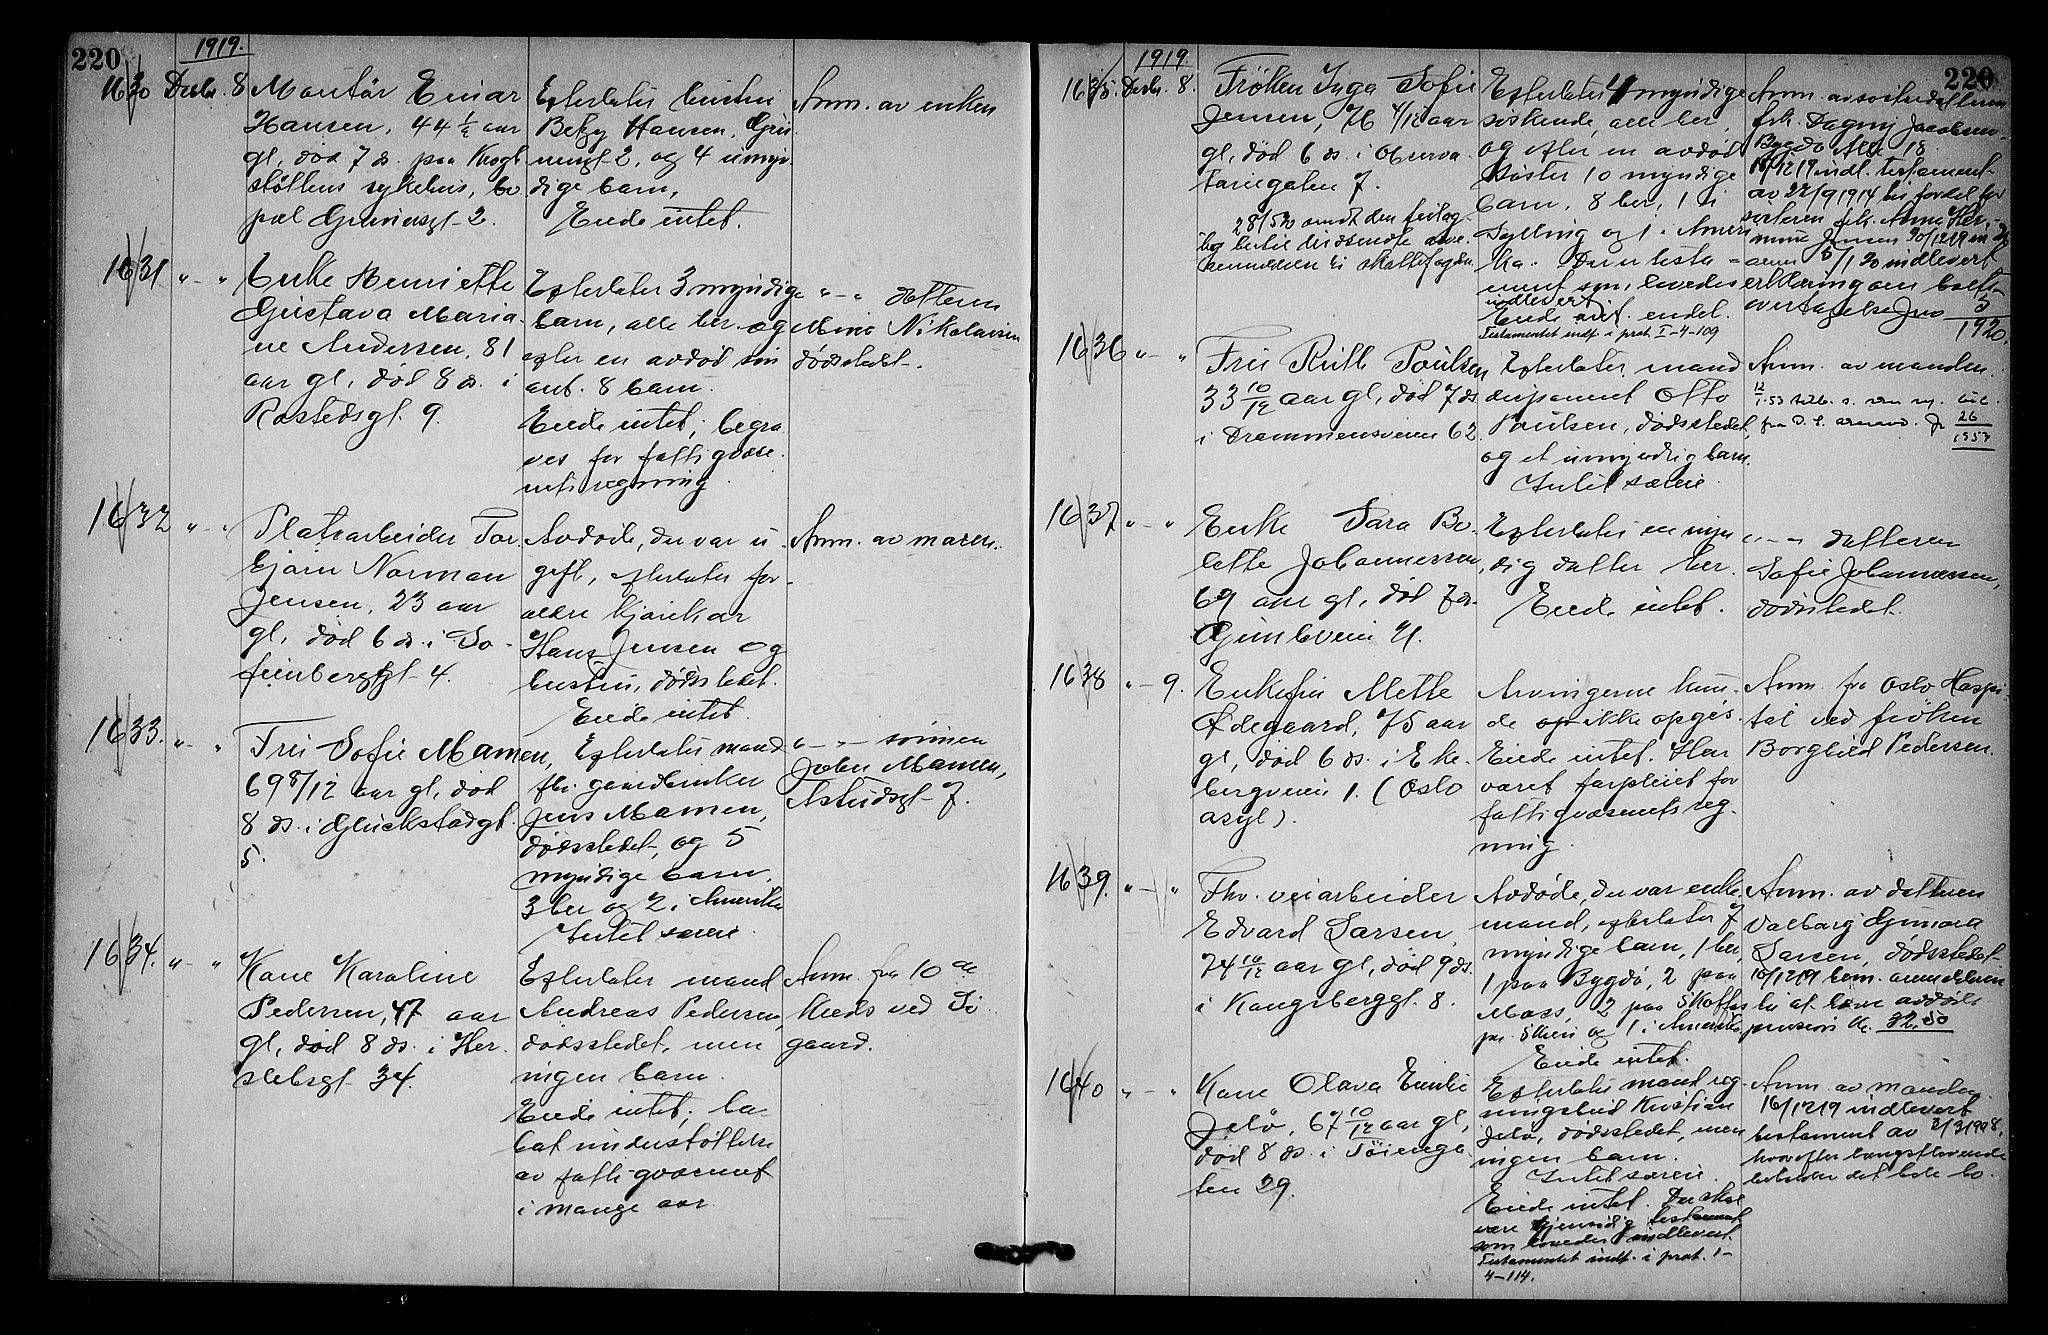 220
1919.
1630 Desbr. 8
Montör Einar
Hansen, 44 1/2 aar
gl, död 7 ds. paa Krogt
stöttens sykehus, bo
pæl Grünersgt 2.
Efterlater hustru
Betzy Hansen, Grü
nersgt 2, og 4 umyn
dige barn.
Eiede intet.
Anm. av enken
1631 " - "
Enke Henriette
Gustava Maria
ne Andersen, 81
aar gl, död 8 ds. i
Rostedsgt. 9.
Efterlater 3 myndige
barn, alle her og
efter en avdöd sön
ant. 8 barn.
Eiede intet; begra
ves for fattigvæse
nets regning.
" - " datteren
Mina Nikolaisen
dödsstedet.
1632 " - "
Platearbeider Tor
björn Norman
Jensen, 23 aar
gl, död 6 ds. i So
fienberggt 4.
Avdöde, der var u
gift, efterlater for
ældre kjörekar
Hans Jensen og
hustru, dödsstedet.
Eiede intet.
Anm. av moren.
1633. " - "
Fru Sofie Mamen,
69 8/12 aar gl, död
8 ds. i Glückstadgt.
5.
Efterlater mand
fhv. gaardbruker
Jens Mamen,
dödsstedet, og 5
myndige barn,
3 her og 2 i Amerika
Intet særeie.
" - " sönnen
Johs Mamen,
7.
1634. " - "
Kone Karoline
Pedersen, 47 aar
gl, död 8 ds. i Her
slebsgt 34.
Efterlater mand
Andreas Pedersen,
dödsstedet, men
ingen barn.
Eiede intet; ha
bat understöttelse
av fattigvæsenet
i mange aar.
Anm. fra 10de
kreds ved Si
gaard.
1919.
220
1635. Desbr. 8.
Fröken Inga Sofie
Jensen, 76 4/12 aar
gl, död 6 ds. i Observa
toriegaten 7.
28/5 20 sendt den
Efterlater 4 myndige
söskende, alle her,
og efter en avdöd
söster 10 myndige
barn, 8 her, 1 i
Sylling og 1 i Ameri
ka. Der er testa
ment som lovedes
indlevert
Eiede endel.
Testamentet indf. i prot. I-4-109
Anm. av sösterdatteren
frk. Dagny Jacobsen
Bygdö Alle 18.
18/12 19 indl. testament
av 22/9 1914 til fordel for
sösteren frk. Anna Her
mine Jensen 30/12 19
5/1 20 indlevert
erklæring om bosets
overtagelse Jno 5
1920.
1636 " - "
Fru Ruth Poulsen
33 10/12 aar gl, död 7 ds
i Drammensveien 62.
Efterlater mand
skuespiller Otto
Poulsen, dödsstedet,
og et umyndig barn.
Intet særeie.
Anm. av manden.
26
1953
1637 " - "
Enke Sara Bo
lette Johannessen,
69 aar gl, död 7 ds.
Gimleveien 21.
Efterlater en myn
dig datter her.
Eiede intet.
" - " datteren
Sofie Johannessen,
dödsstedet.
1638 " - 9.
Enkefru Mette
Ødegaard, 75 aar
gl, död 6 ds. i Eke
bergveien 1. (Oslo
asyl).
Arvingerne kun
de ikke opgis.
Eiede intet. Har
været forpleiet for
fattigvæsenets reg
ning.
Anm. fra Oslo Hospi
tal ved fröken
Borghild Pedersen.
1639. " - "
Fhv. veiarbeider
Edvard Larsen,
74 10/12 aar gl, död 9 ds.
i Kongsberggt. 8.
Avdöde, der var enke
mand, efterlater 7
myndige barn, 1 her,
1 paa Bygdö, 2 paa
Moss, 2 paa Skotfos
pr. Skien og 1 i Amerika
Eiede intet.
Anm. av datteren
Valborg Gunvora
Larsen, dödsstedet
10/12 19 bem. anmelderen
til at hæve avdödes
pension kr. 32.50
1640 " - "
Kone Olava Emilie
Jelö, 67 10/12 aar gl,
död 8 ds. i Töienga
ten 29.
Efterlater mand reg
ningsbud Kristian
Jelö, dödsstedet, men
ingen barn.
Intet særeie.
Eiede intet. Der skal
være gjensidig testament
som lovedes indlevert.
Testamentet indf. i prot. I-
4-114.
Anm. av manden.
16/12 19 indlevert
testament av 2/3 1908,
hvorefter længstlevende
beholder det hele bo.